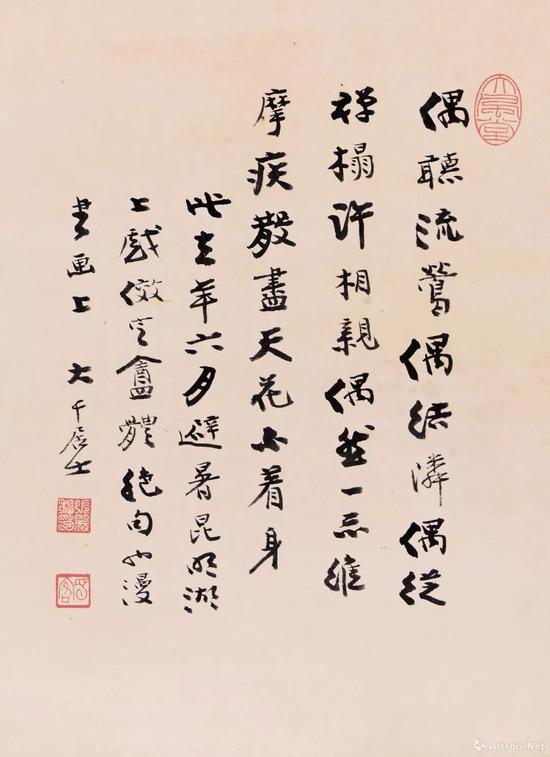 偶聽流鶯偶結隣偶從
禪榻許相親偶然一示維
摩疾散盡天花不着身
此去年六月避暑昆明湖
上戲倣定盦體絕句也漫
書画上 大千居士
大風堂
Artron.Net